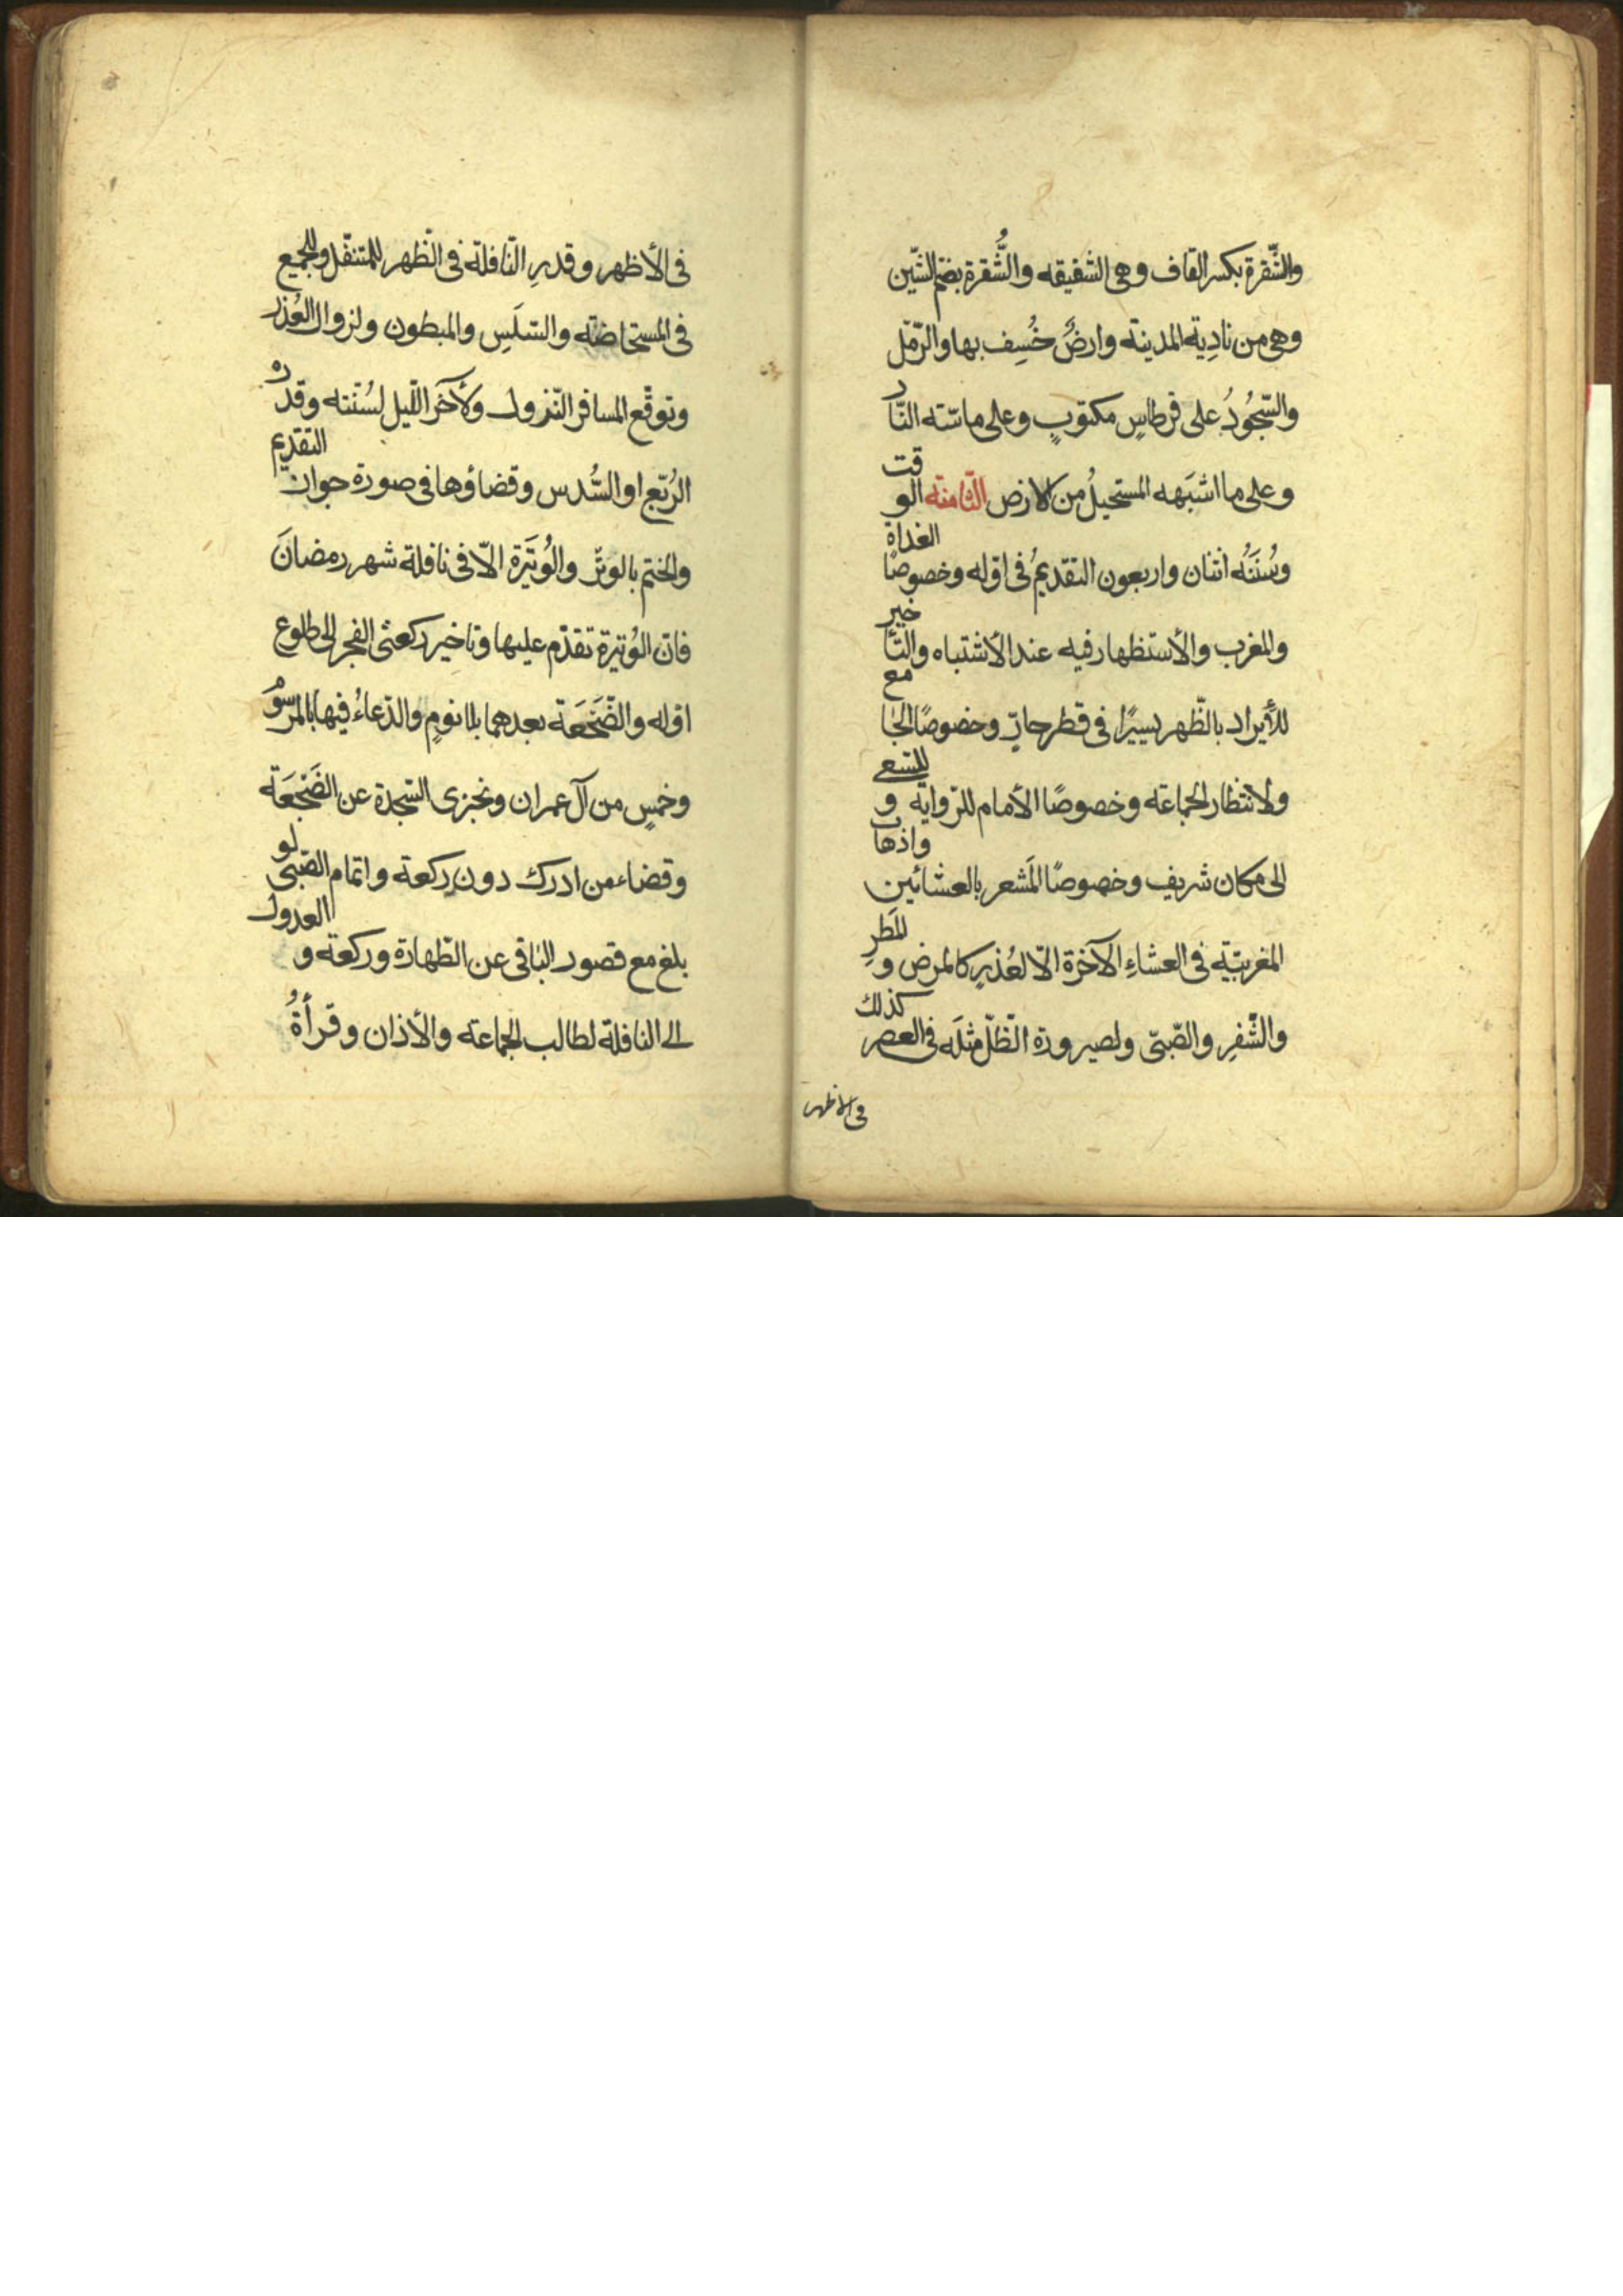 والشَّقِرة بكسر القاف وهى الشقيقه والشُّقرة بضمّ الشّين
وهى من نادِية المدينة وارضٌ خُسِف بها والرّمل
والسّجُودُ على قرطاسٍ مكتوبٍ وعلى ما مسّته النّار
وعلى ما اشبَهه المستحيلُ من الارض الثّامنة الوقت
وسُنَنُه اثنان واربعون التقديمُ فى اوّله وخصوصًا الغداة
والمغرب والأستظهار فيه عند الأشتباه والتّأخير
للأيراد بالظّهر يسيرًا فى قطر حارّ وخصوصًا الجامع
ولانتظار الجماعة وخصوصًا الأمام للرّواية وللسّعى
الى مكان شريف وخصوصًا المَشعر بالعشائين واذهاب
المغربيّة فى العشاءِ الآخرة الّا لعُذرٍ كالمرض والمَطَرِ
والسّفرِ والصّبىّ ولصيرورة الظّلّ مثلَه فى العصر كذلك
فى الاظهر
فى الأظهر وقدرِ النّافلة فى الظّهر للمتنفّل وللجمع
فى المستحاضة والسّلَسِ والمبطون ولزوال العُذر
وتوقّع المسافر النّزول ولآخر اللّيل لسُنّته وقدره
الرُبّع او السُّدس وقضاؤها فى صورة جواز التقديم
والختم بالوتر والوُتَيْرَة الّا فى نافلة شهر رمضانَ
فانّ الوُتيرة تقدّم عليها وتاخير ركعتى الفجر الى طلوع
اوّله والضَّجَعَة بعدهما بلا نومٍ والدّعاءُ فيها بالمرسُوْم
وخمسٍ من آل عمران وتجزى السّجدة عن الضَّجْعَة
وقضاء من ادرك دون ركعة واتمام الصّبى لو
بلغ مع قصور الباقى عن الطّهارة وركعة والعدول
الى النافلة لطالب الجماعة والأذان وقرأةُ